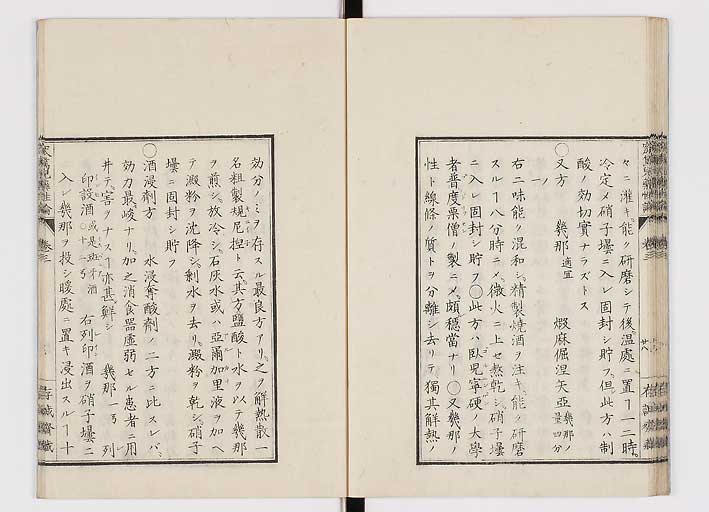 々ニ灌キ能ク研磨シテ後温處ニ置ヿ一二時
冷定メ硝子壜ニ入レ固封シ貯フ但此方ハ制
酸ノ効切實ナラズトス
〇又方 幾那 適宜 煆麻倔涅矢亞 幾那ノ量四分
ノ一
右二味能ク混和シ精製燒酒ヲ注キ能ク研磨
スルヿ八分時ニメ微火ニ上セ熬乾シ硝子壜
ニ入レ固封シ貯フ〇此方ハ臥児寧硬ノ大學
者普度栗僧ノ製ニメ頗穏當ナリ〇又幾那ノ
性ト線條ノ質トヲ分離シ去リテ獨其解熱ノ
効分ノミヲ存スル最良方アリ之ヲ解熱散一
名粗製規尼捏ト云其方鹽酸ト水ヲ以テ幾那
ヲ煎シ放冷シ石灰水或ハ亞爾加里液ヲ加ヘ
テ澱粉ヲ沈降シ剰水ヲ去リ澱粉ヲ乾シ硝子
壜ニ固封シ貯フ
〇酒浸劑方 水浸奪酸劑ノ二方ニ比スレバ
効力最峻ナリ加之消食器虚弱セル患者ニ用
井テ害ヲナスヿ亦甚鮮シ 幾那 一弓 列
印設酒 或是班牙酒 〇十一弓 右列印酒ヲ硝子壜ニ
入レ幾那ヲ投シ暖處ニ置キ浸出スルヿ十